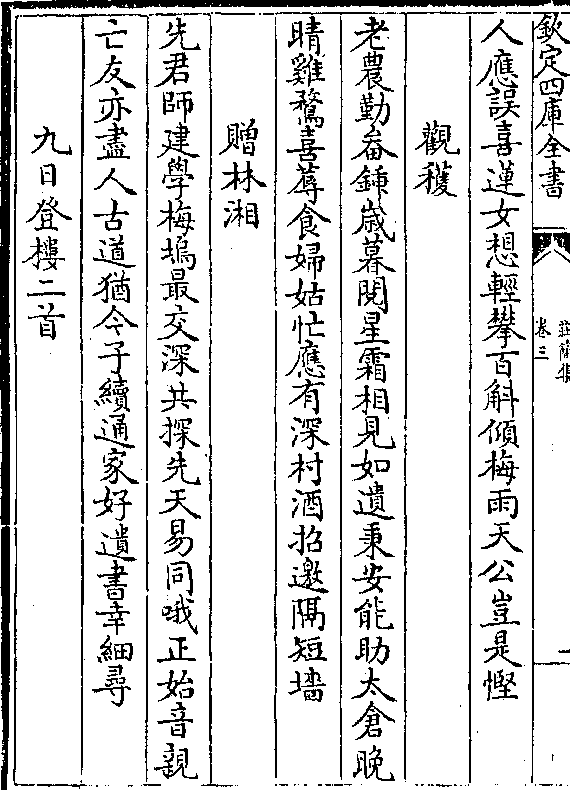 欽定四庫全書
卷三
人應誤喜蓮女想輕攀百斛傾梅雨天公豈是慳
觀穫
老農勤畚鍤歲暮閱星霜相見如遺秉安能助太倉晚
晴雞鶩喜蓐食婦姑忙應有深村酒招邀隔短墻
贈林湘
先君師建學梅塢最交深共探先天易同哦正始音親
亡友亦盡人古道猶今子續通家好遺書幸細尋
九日登樓二首